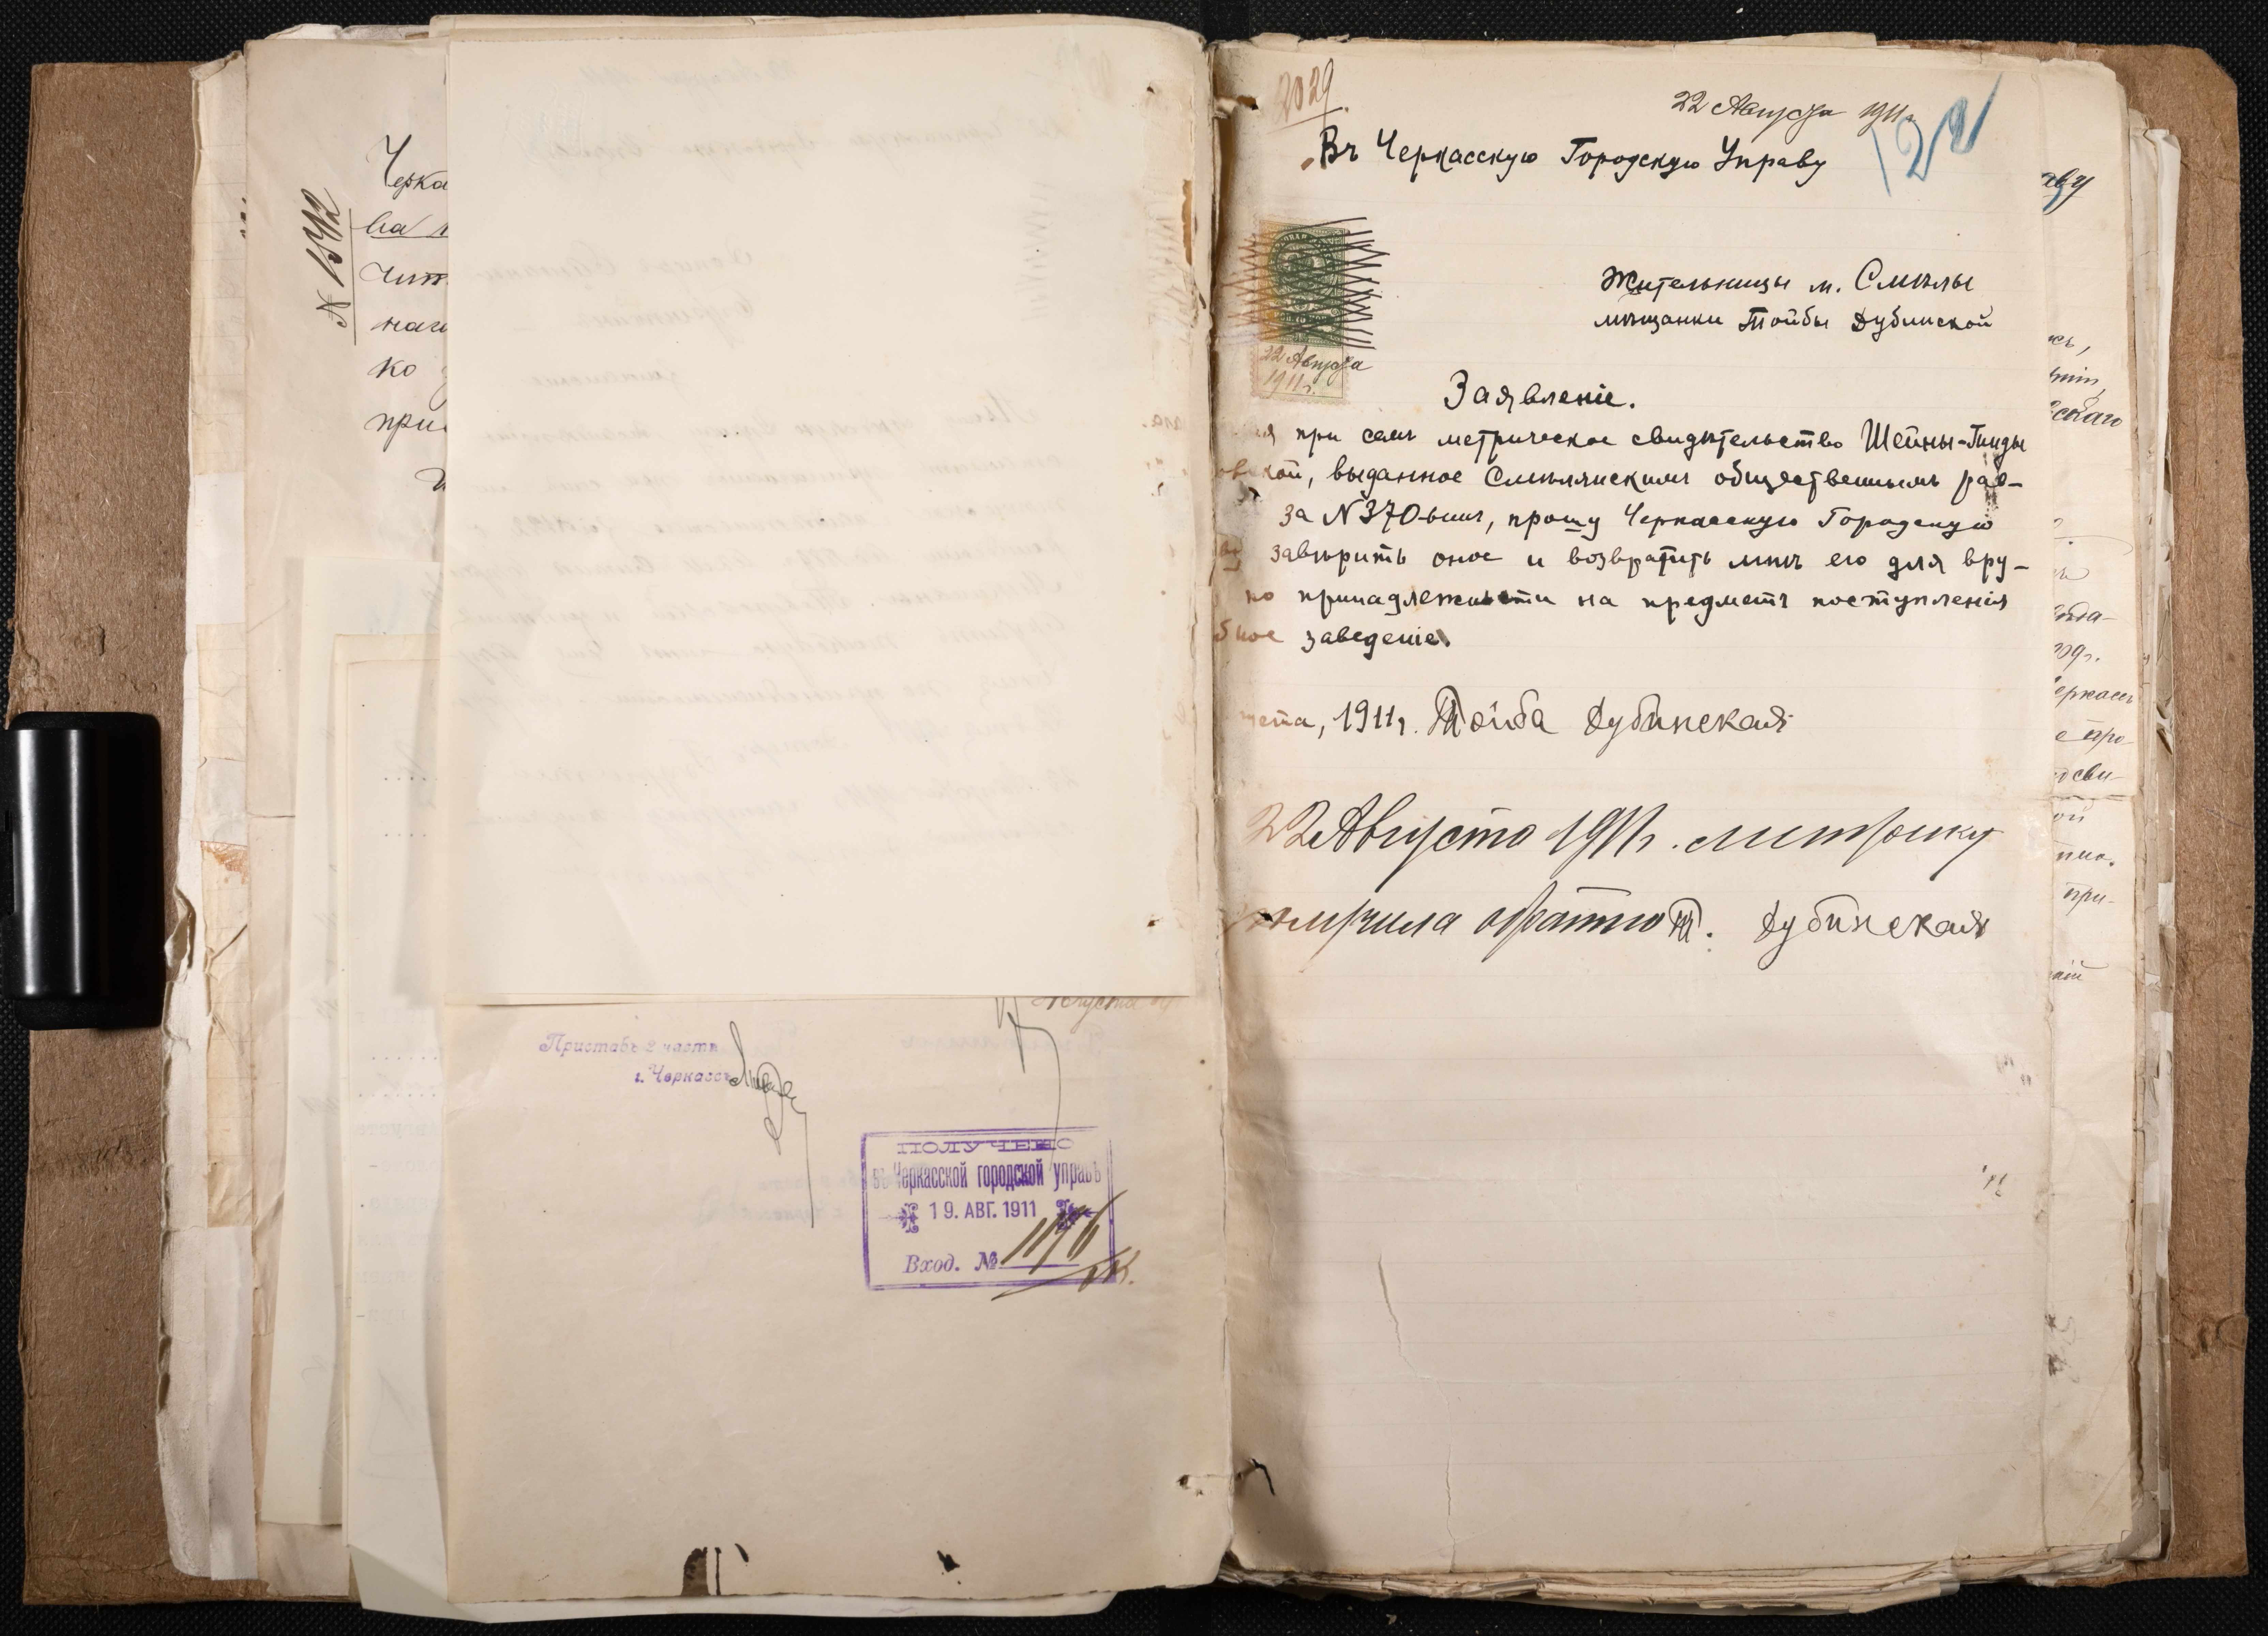 № 1592
Черка
на
чит
наг
ко
при
Приставъ 2 части
г. Черкассъ
ПОЛУЧЕНО
въ Черкасской городской управѣ
19. АВГ. 1911
Вход. №
2029.
22 Августа 1911 г.
Въ Черкасскую Городскую Управу
22 Августа
1911 г.
Жительницы м. Смѣлы
мѣщанки Тойбы Дубинской
Заявленіе.
при семъ метрическое свидѣтельство Шейны-Гинды
ской, выданное Смѣлянскимъ общественнымъ рав-
за №370-ымъ, прошу Черкасскую Городскую
завѣрить оное и возвратить мнѣ его для вру-
по принадлежности на предметъ поступленія
бное заведеніе.
уста, 1911 г. Тойба Дубинская
22 Августа 1911 г. метрику
получила обратно Т. Дубинская
аву
скаго
09 г.
Черкассъ
е про-
сви-
ой
при-